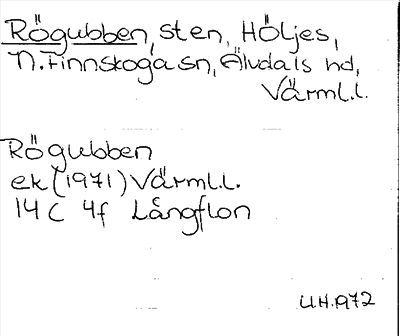 Rögubben, sten, Höljes,
N. Finnskoga sn, Älvdals hd,
Värml.l.
Rögubben
ek (1971) Värml.l.
14 C 4f Långflon
U.H. 1972